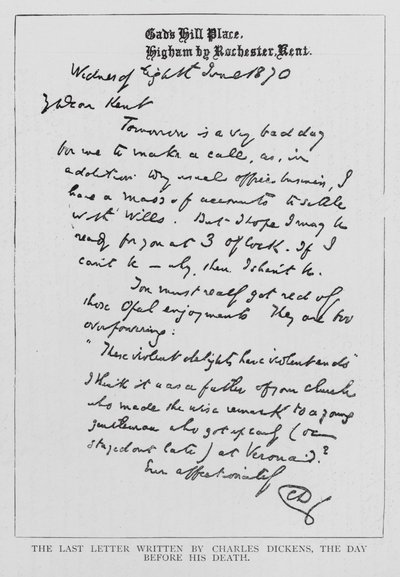 Gad's Hill Place,
Higham by Rochester, Kent.
Wednesday Eighth June 1870
My dear Kent
Tomorrow is a very bad day
for me to make a call, as, in
addition to my usual office business, I
have a mass of accounts to settle
with Wills. But I hope I may be
ready for you at 3 o'clock. If I
can't be – why, then I shan't be.
You must really get rid of
those Opal enjoyments. They are too
overpowering:
"These violent delights have violent ends"
I think it was a father of your church
who made the wise remark to a young
gentleman who got up early (or
stayed out late) at Verona?
Ever affectionately
CD
THE LAST LETTER WRITTEN BY CHARLES DICKENS, THE DAY
BEFORE HIS DEATH.